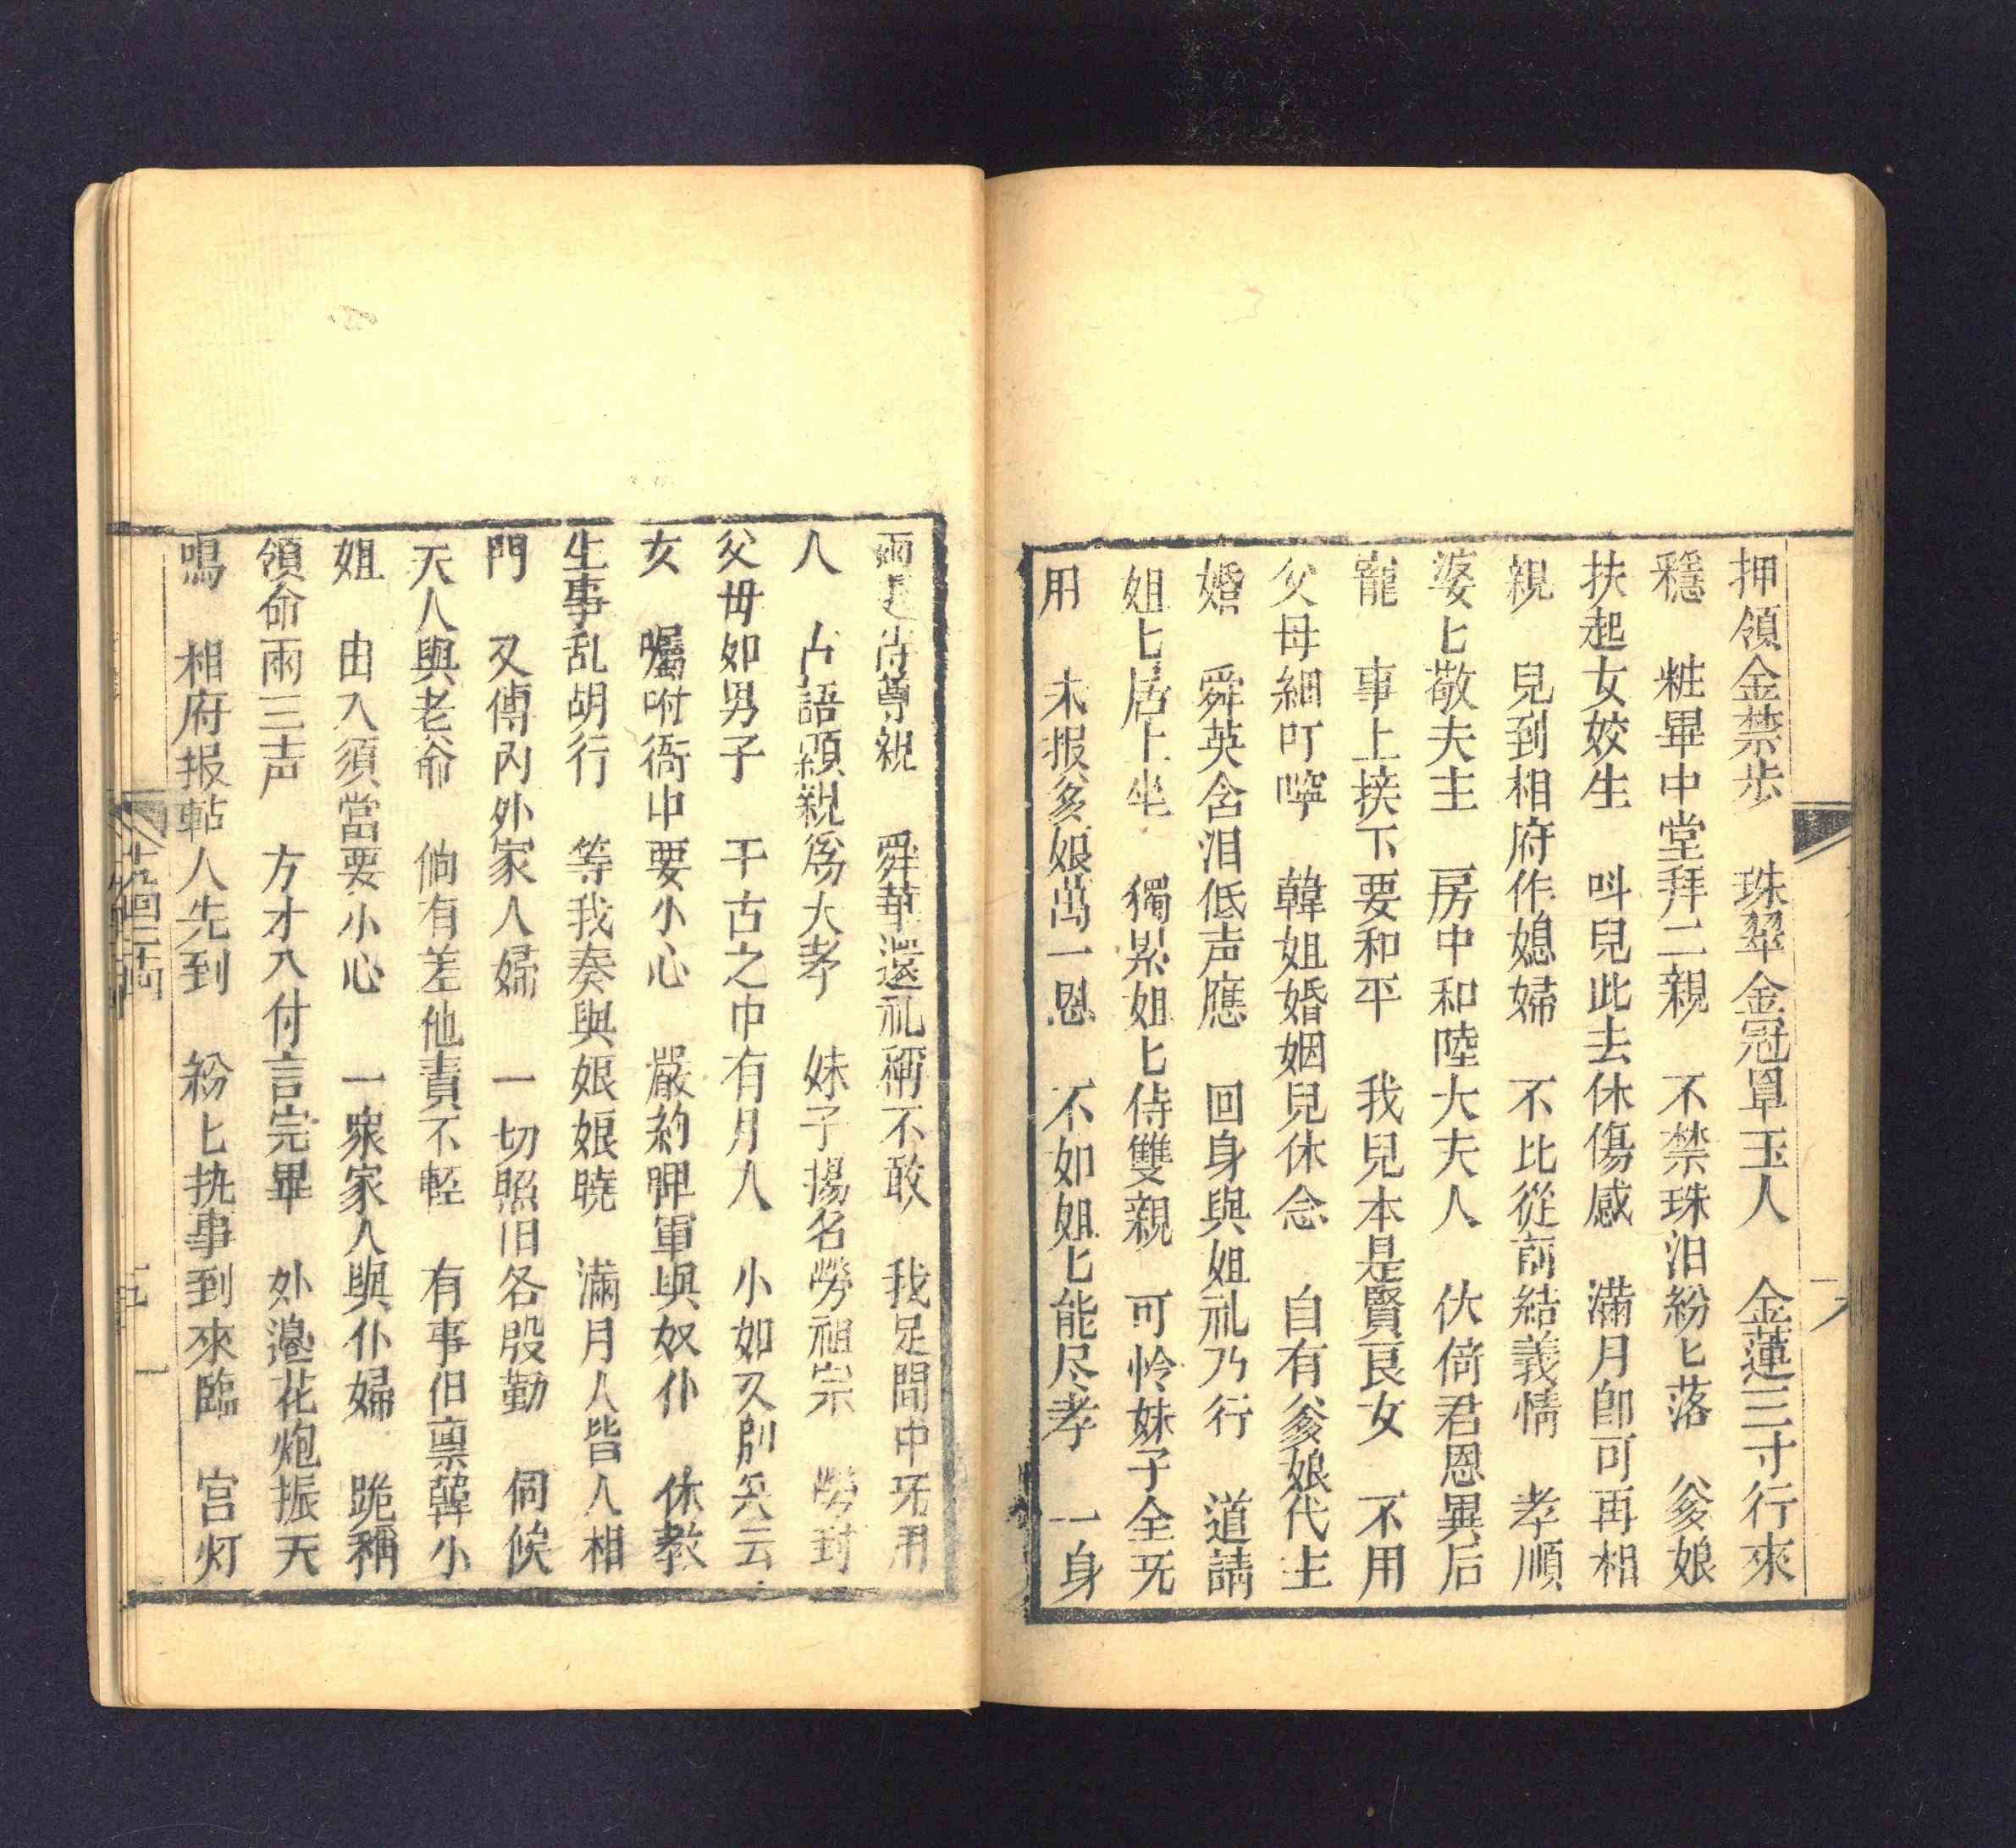 押領金禁步　珠翠金冠罩玉人　金蓮三寸行來
穩　粧畢中堂拜二親　不禁珠泪紛匕落　爹娘
扶起女姣生　呌兒此去休傷感　滿月卽可再相
親　兒到相府作媳婦　不比從前結義情　孝順
婆匕敬夫主　房中和陸大夫人　伏倚君恩異后
寵　事上接下要和平　我兒本是賢良女　不用
父母細叮嚀　韓姐婚姻兒休念　自有爹娘代主
婚　舜英含泪低声應　回身與姐礼乃行　道請
姐匕居上坐　獨累姐匕侍雙親　可怜妹子全旡
用　未报爹娘萬一恩　不如姐匕能尽孝　一身
尊親　舜華還礼稱不敢　我是閨中旡用
人　古語顕親爲大孝　妹子揚名勞祖宗　封
父母如男子　千古之中有月人　小如又别兵云
女　囑咐衙中要小心　嚴約呷軍與奴仆　休教
生事乱胡行　等我奏與娘娘曉　滿月人皆人相
門　又傳內外家人婦　一切照旧各殷勤　伺候
夫人與老爺　倘有差他責不輕　有事但禀韓小
姐　由入須當要小心　一衆家人與仆婦　跪稱
領命兩三声　方才入付言完畢　外邊花炮振天
鳴　相府报帖人先到　紛匕执事到來臨　宫灯